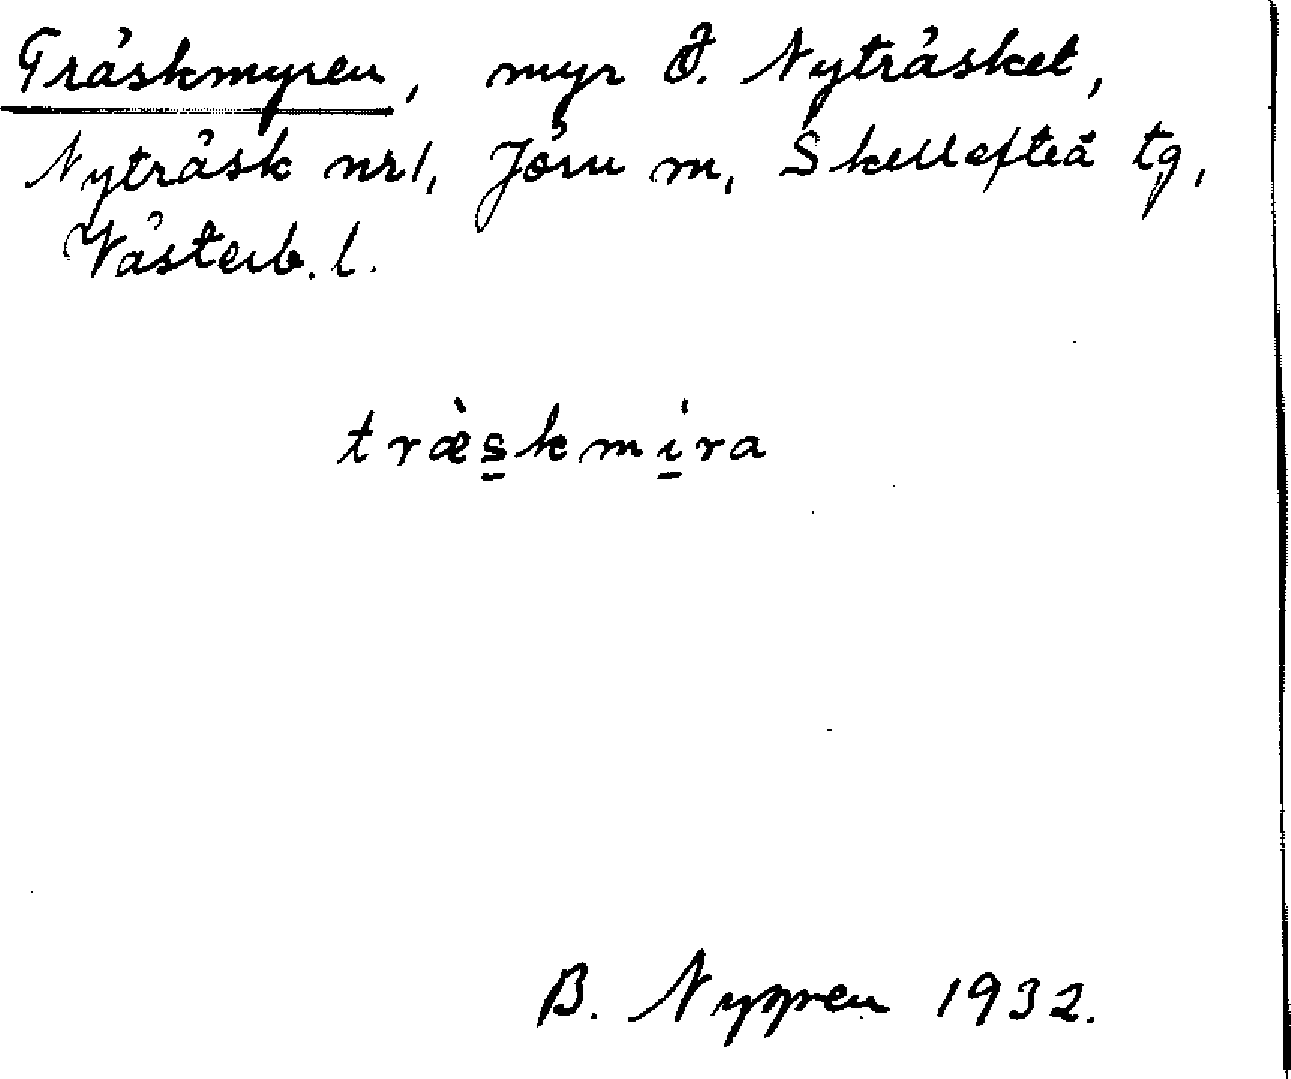 Träskmyren, myr Ö. Nyträsket,
Nyträsk nr 1, Jörn m, Skellefteå tg,
Västerb. l.
træ̀s̲kmí̲ra
B. 1932.